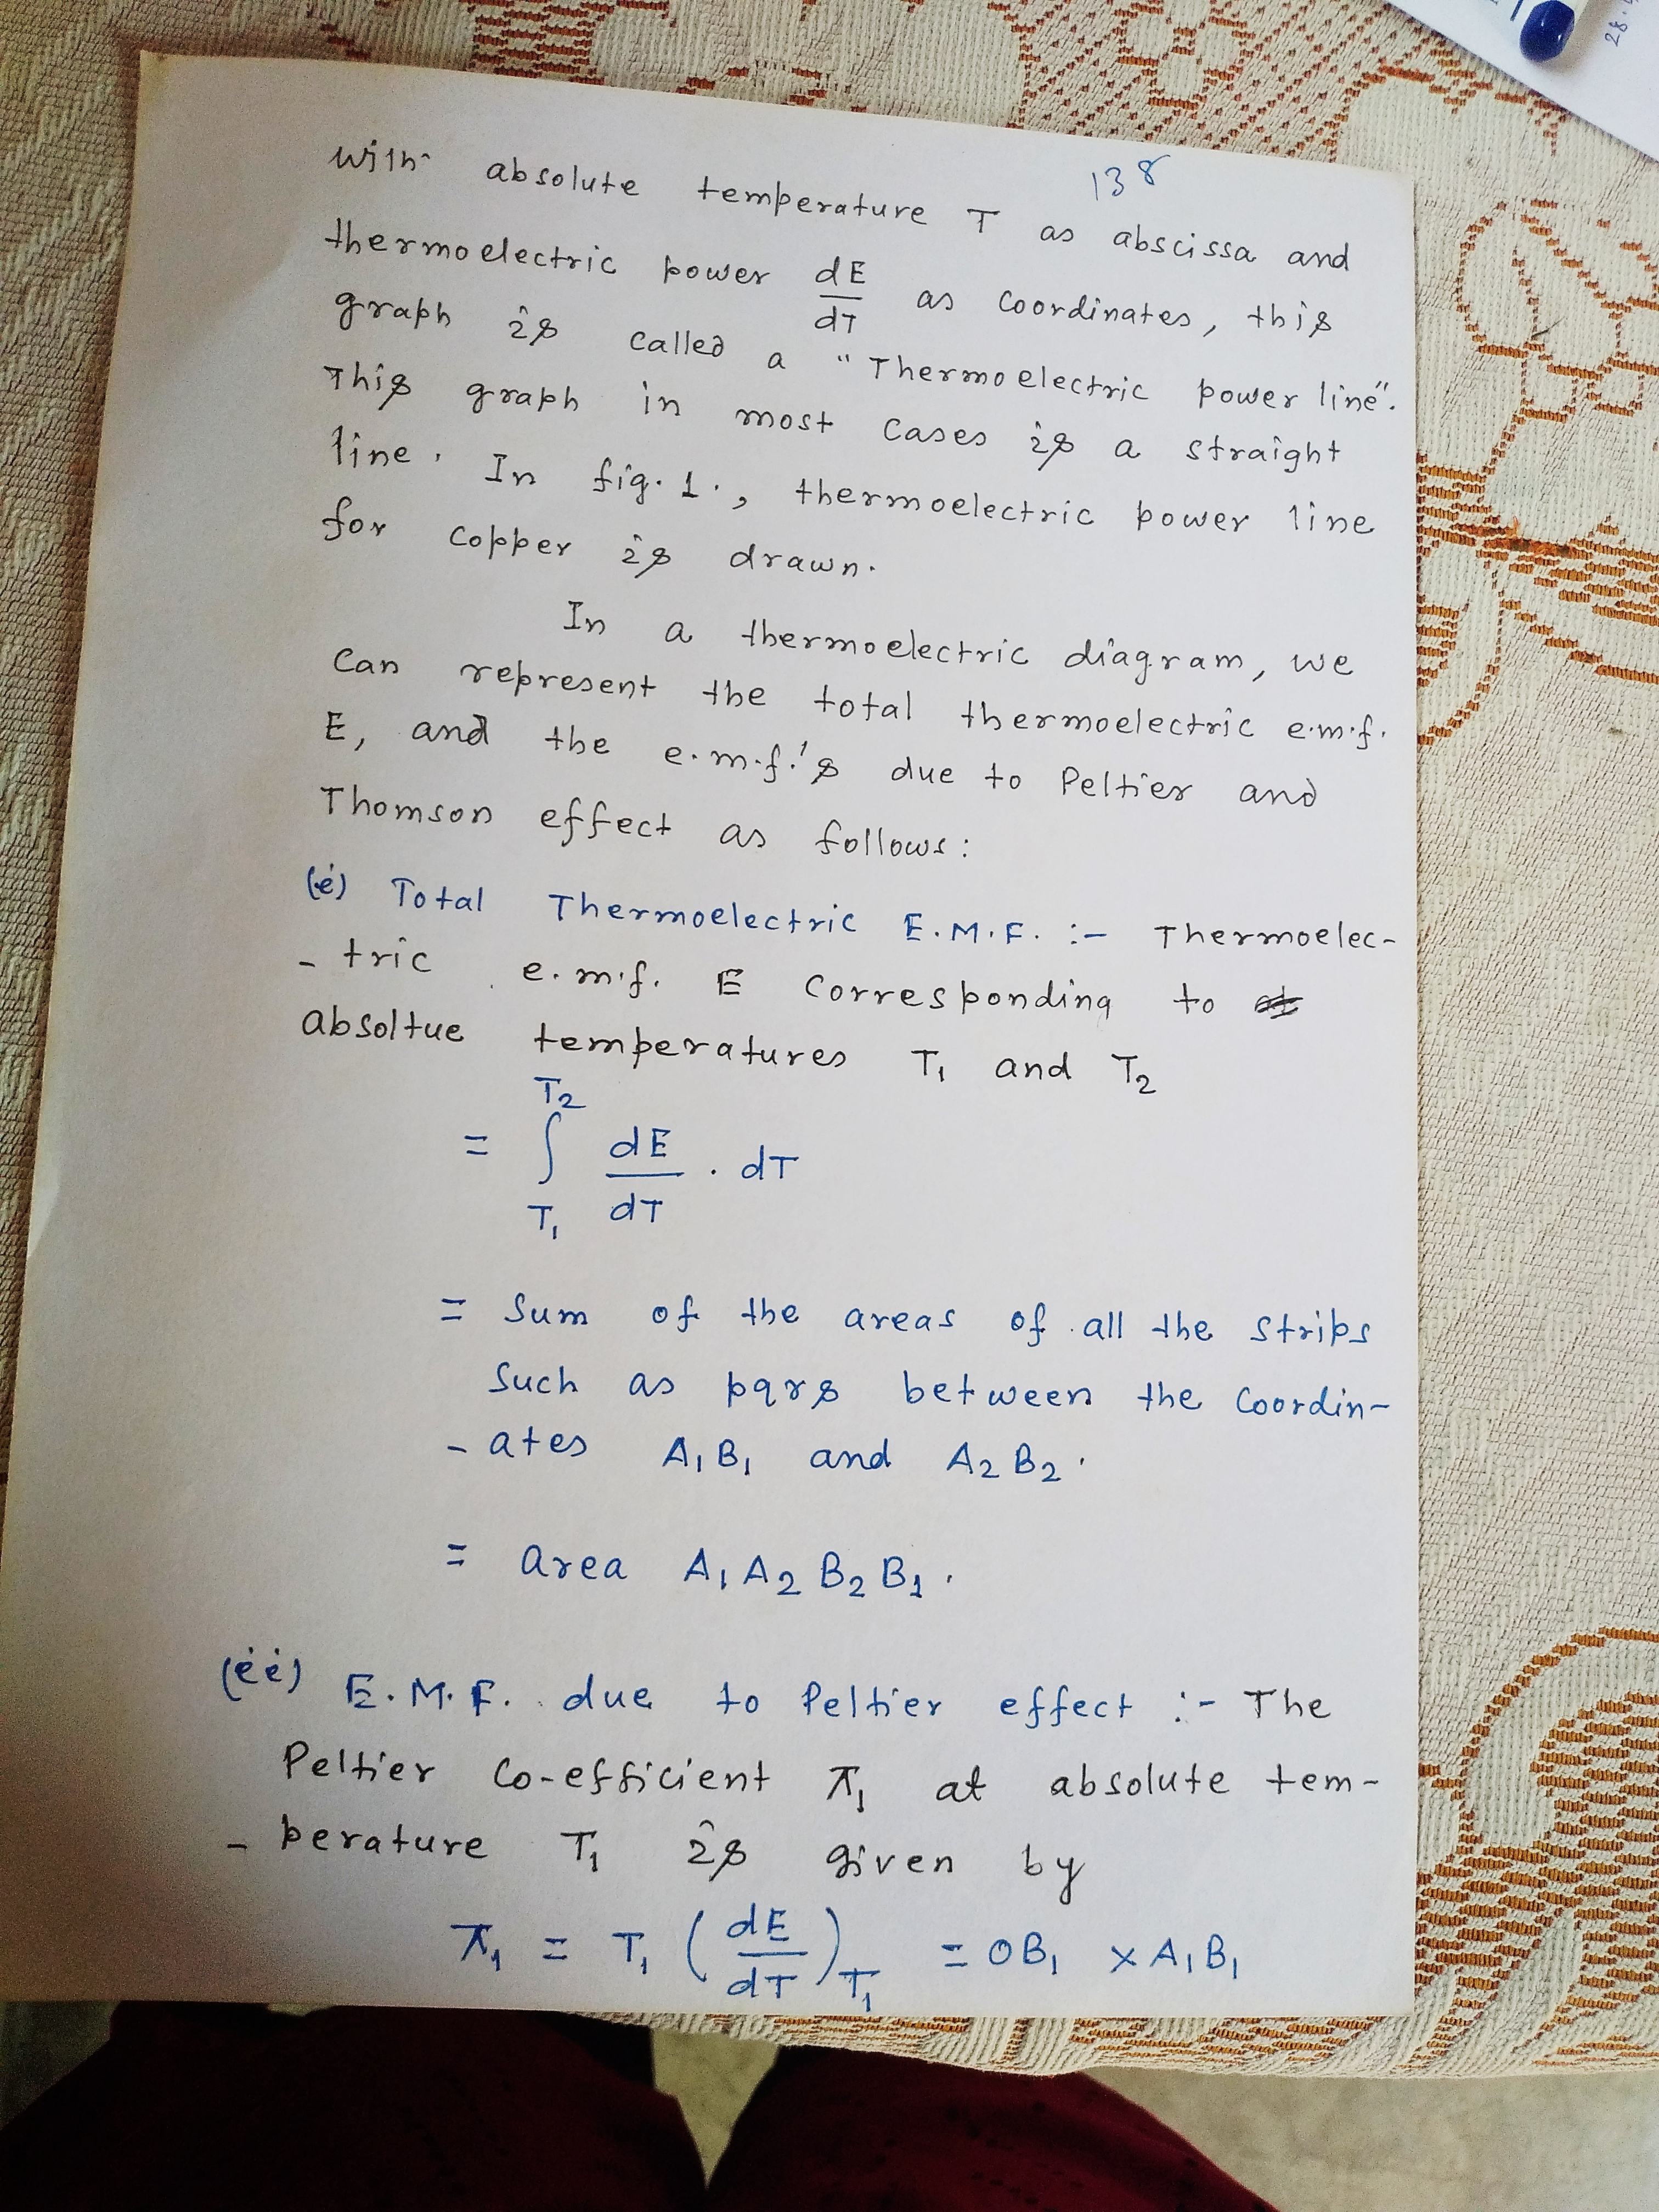 138
with absolute temperature T as abscissa and
thermoelectric power dE/dT as coordinates, this
graph is called a "Thermoelectric power line".
This graph in most cases is a straight
line. In fig. 1., thermoelectric power line
for copper is drawn.
In a thermoelectric diagram, we
can represent the total thermoelectric e.m.f.
E, and the e.m.f.'s due to Peltier and
Thomson effect as follows:
(i) Total Thermoelectric E.M.F. :- Thermoelec-
- tric e.m.f. E corresponding to
absoltue temperatures T₁ and T₂
= ∫_{T₁}^{T₂} dE/dT . dT
= Sum of the areas of all the strips
such as pqrs between the coordin-
- ates A₁B₁ and A₂B₂.
= area A₁A₂B₂B₁.
(ii) E.M.F. due to Peltier effect :- The
Peltier co-efficient π₁ at absolute tem-
- perature T₁ is given by
π₁ = T₁ (dE/dT)_{T₁} = OB₁ × A₁B₁